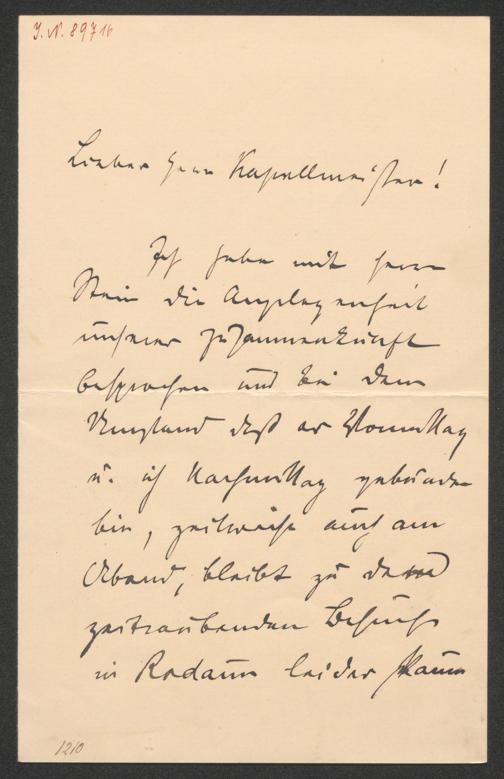 J. N. 89716
Lieber Herr Kapellmeister!
Ich habe mit Herrn
Stein die Angelegenheit
unserer Zusammenkunft
besprochen und bei dem
Umstand daß er Vormittag
u. ich Nachmittag gebunden
bin, zeitweise auch am
Abend, bleibt zu dem
zeitraubenden Besuche
in Rodaun leider kaum
1210